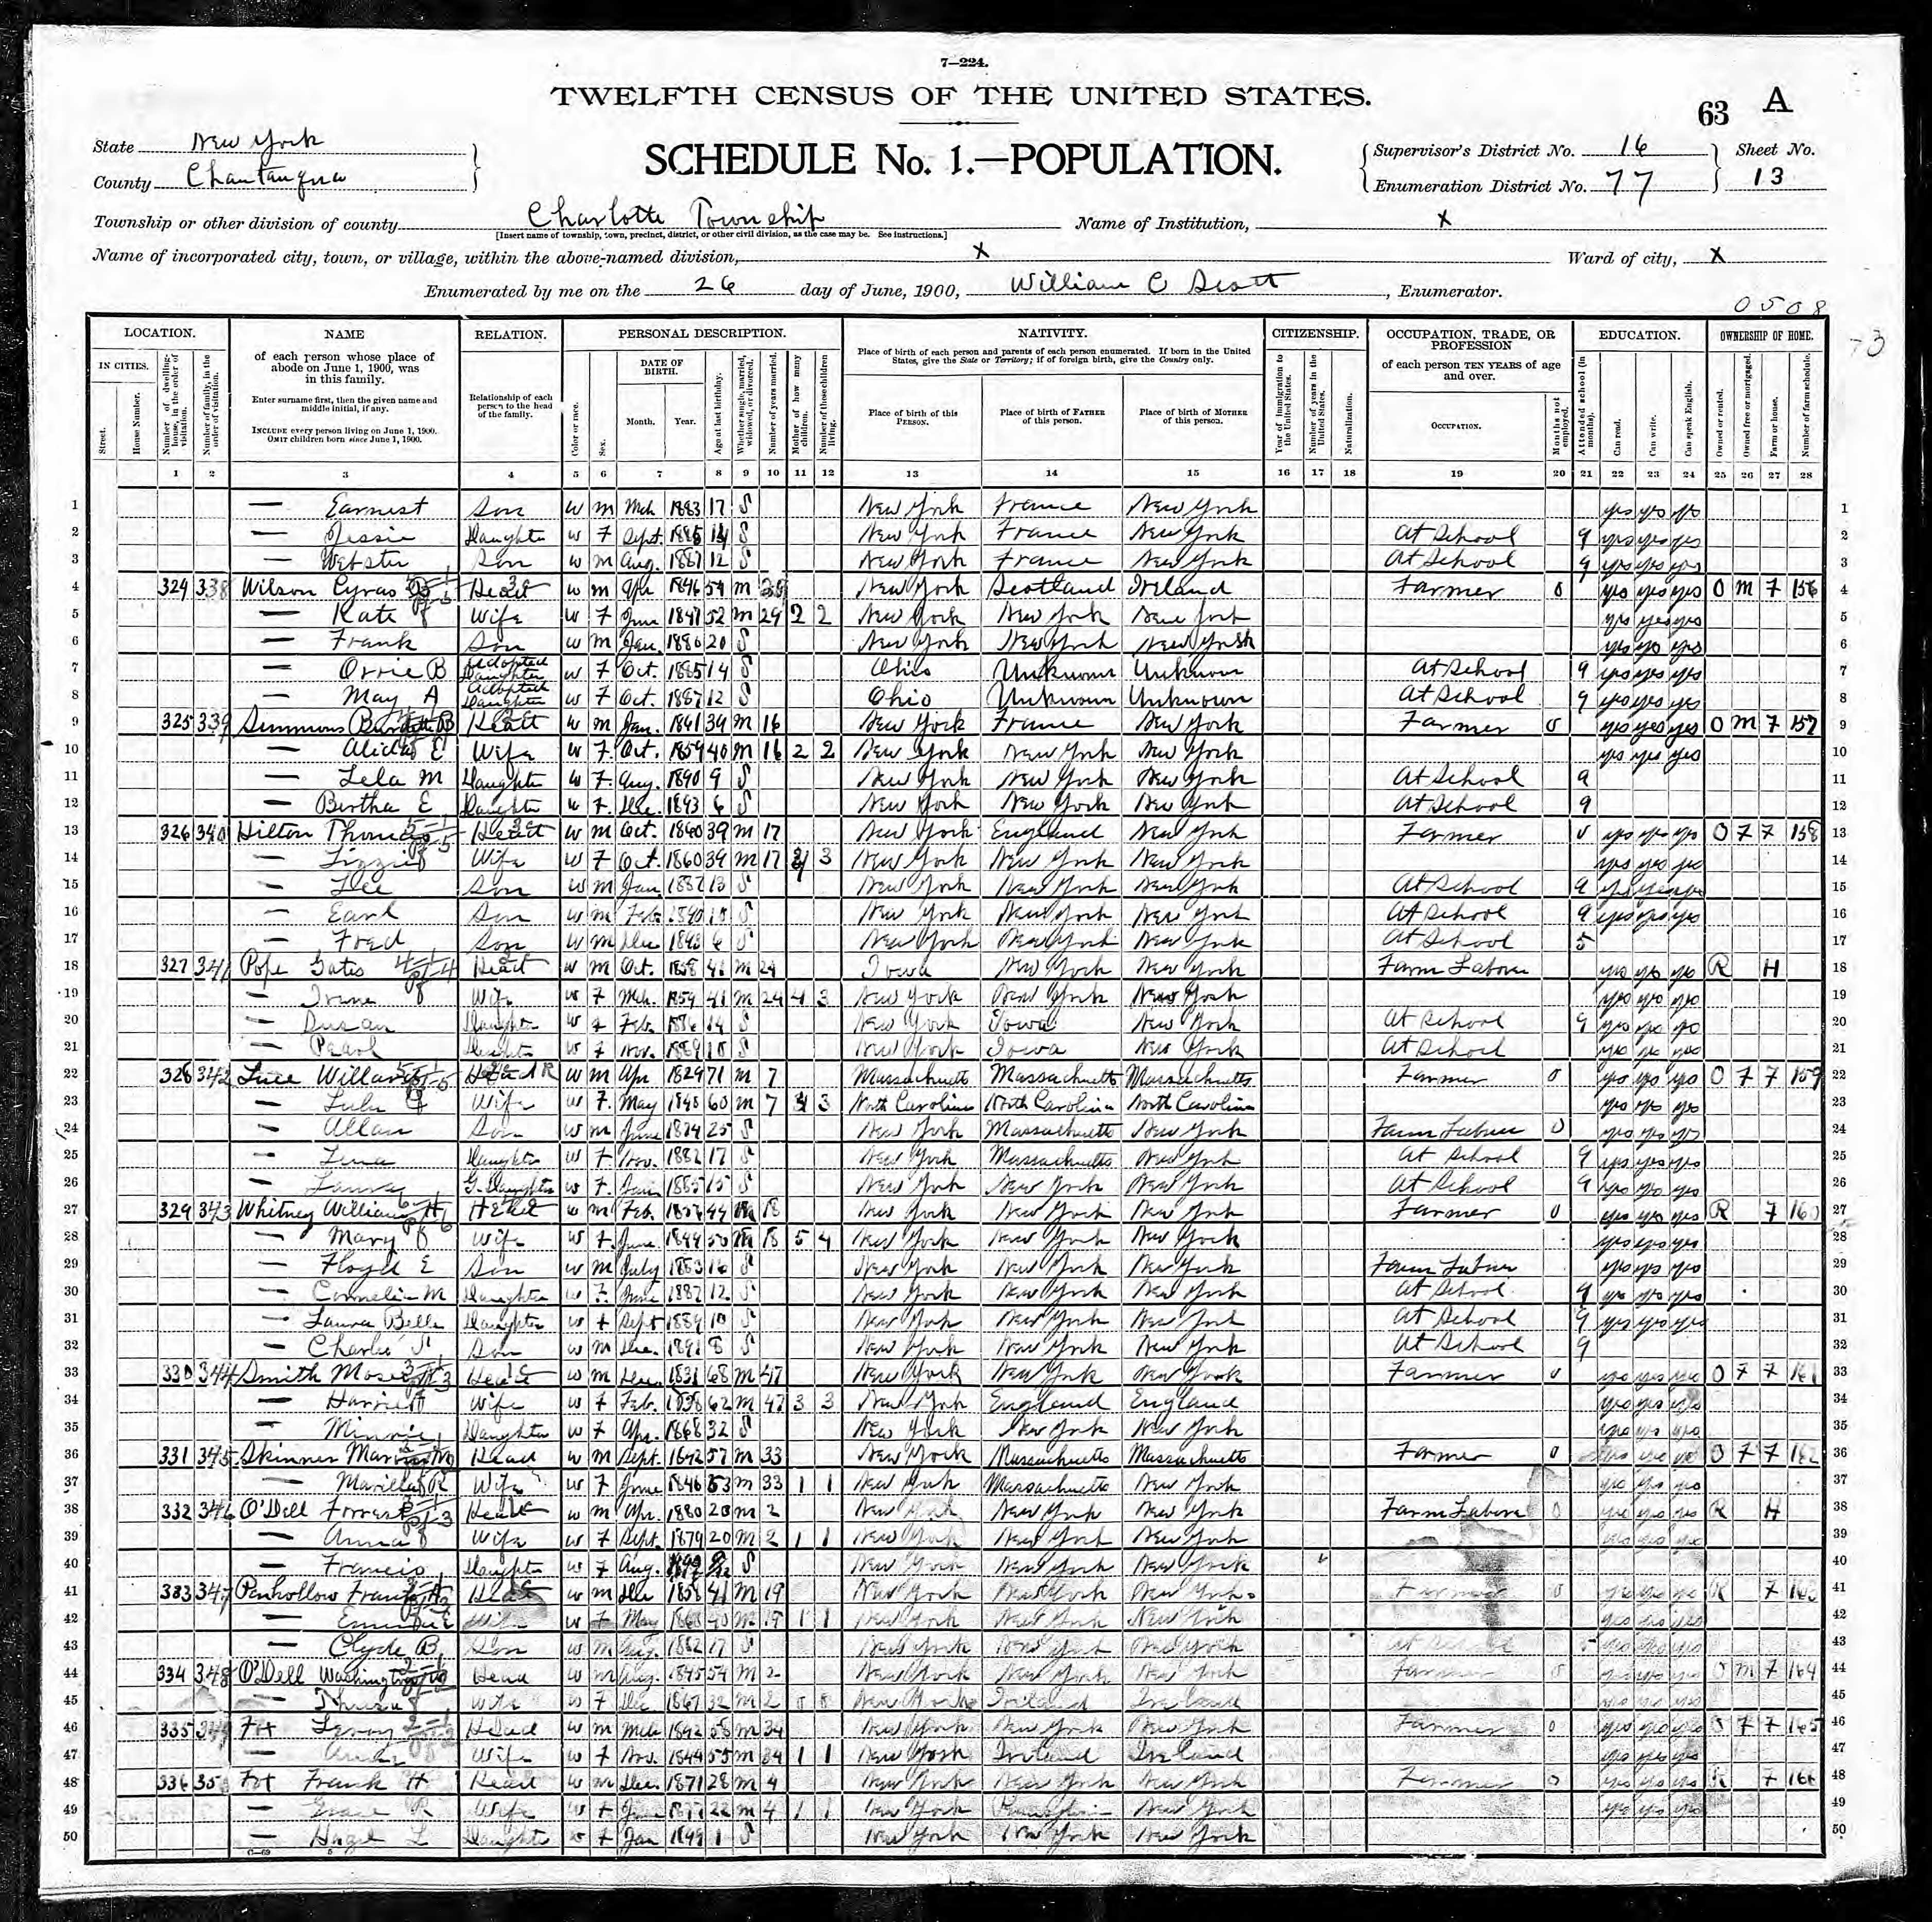 7—224.
TWELFTH CENSUS OF THE UNITED STATES.
63 A
State New York
SCHEDULE No. 1.—POPULATION.
Supervisor's District No. 16 Sheet No.
County Chautauqua
Enumeration District No. 77 13
Township or other division of county Charlotte Township Name of Institution, X
[Insert name of township, town, precinct, district, or other civil division, as the case may be. See instructions.]
Name of incorporated city, town, or village, within the above-named division, X Ward of city, X
Enumerated by me on the 26 day of June, 1900, William C Scott, Enumerator.
0508
LOCATION. NAME RELATION. PERSONAL DESCRIPTION. NATIVITY. CITIZENSHIP. OCCUPATION, TRADE, OR PROFESSION EDUCATION. OWNERSHIP OF HOME.
IN CITIES. Street. House Number. Number of dwelling-house, in the order of visitation. Number of family, in the order of visitation.
of each person whose place of abode on June 1, 1900, was in this family.
Enter surname first, then the given name and middle initial, if any.
INCLUDE every person living on June 1, 1900. OMIT children born since June 1, 1900.
Relationship of each person to the head of the family.
Color or race. Sex. DATE OF BIRTH. Month. Year. Age at last birthday. Whether single, married, widowed, or divorced. Number of years married. Mother of how many children. Number of these children living.
Place of birth of each person and parents of each person enumerated. If born in the United States, give the State or Territory; if of foreign birth, give the Country only.
Place of birth of this PERSON. Place of birth of FATHER of this person. Place of birth of MOTHER of this person.
Year of immigration to the United States. Number of years in the United States. Naturalization.
of each person TEN YEARS of age and over.
OCCUPATION. Months not employed.
Attended school (in months). Can read. Can write. Can speak English.
Owned or rented. Owned free or mortgaged. Farm or house. Number of farm schedule.
1 2 3 4 5 6 7 8 9 10 11 12 13 14 15 16 17 18 19 20 21 22 23 24 25 26 27 28
1 — Earnest Son W M Mch 1883 17 S New York France New York yes yes yes 1
2 — Jessie Daughter W F Sept 1885 14 S New York France New York At School 9 yes yes yes 2
3 — Webster Son W M Aug. 1887 12 S New York France New York At School 9 yes yes yes 3
4 324 338 Wilson Cyrus Head W M 1846 54 M New York Scotland Ireland Farmer 0 yes yes yes O M F 156 4
5 — Kate Wife W F June 1847 52 M 29 2 2 New York New York New York yes yes yes 5
6 — Frank Son W M Jan. 1880 20 S New York New York New York yes yes yes 6
7 — Orrie B Adopted Daughter W F Oct. 1885 14 S Ohio Unknown Unknown At School 9 yes yes yes 7
8 — May A Adopted Daughter W F Oct. 1887 12 S Ohio Unknown Unknown At School 9 yes yes yes 8
9 325 339 Simmons B Head W M Jan. 1861 39 M 16 New York France New York Farmer 0 yes yes yes O M F 157 9
10 — E Wife W F Oct. 1859 40 M 16 2 2 New York New York New York yes yes yes 10
11 — Lela M Daughter W F Aug. 1890 9 S New York New York New York At School 9 11
12 — Bertha E Daughter W F Dec. 1893 6 S New York New York New York At School 9 12
13 326 340 Hilton Thomas Head W M Oct. 1860 39 M 17 New York England New York Farmer 0 yes yes yes O F F 158 13
14 — Lizzie Wife W F Oct. 1860 39 M 17 3 New York New York New York yes yes yes 14
15 — Lee Son W M Jan 1887 13 S New York New York New York At School 9 yes yes yes 15
16 — Earl Son W M Feb. 1890 10 S New York New York New York At School 9 yes yes yes 16
17 — Fred Son W M Dec 1893 6 S New York New York New York At School 5 17
18 327 341 Pope Gates Head W M Oct. 1858 41 M 24 Iowa New York New York Farm Labor yes yes yes R H 18
19 — Irene Wife W F Mch. 1859 41 M 24 4 3 New York New York New York yes yes yes 19
20 — Susan Daughter W F Feb. 1886 14 S New York Iowa New York At School 9 yes yes yes 20
21 — Pearl Daughter W F Nov. 1889 10 S New York Iowa New York At School yes yes yes 21
22 328 342 Luce Willard Head W M Apr 1829 71 M 7 Massachusetts Massachusetts Massachusetts Farmer 0 yes yes yes O F F 159 22
23 — Lulu Wife W F May 1840 60 M 7 3 North Carolina North Carolina North Carolina yes yes yes 23
24 — Allan Son W M June 1874 25 S New York Massachusetts New York Farm Labor 0 yes yes yes 24
25 — Lena Daughter W F Nov. 1882 17 S New York Massachusetts New York At School 9 yes yes yes 25
26 — G. Daughter W F 1885 15 S New York New York New York At School 9 yes yes yes 26
27 329 343 Whitney William H Head W M Feb. 44 M 18 New York New York New York Farmer 0 yes yes yes R F 160 27
28 — Mary Wife W F June 1849 50 M 18 5 4 New York New York New York yes yes yes 28
29 — Floyd E Son W M July 1883 16 S New York New York New York Farm Labor yes yes yes 29
30 — Cornelia M Daughter W F June 1887 12 S New York New York New York At School 9 yes yes yes 30
31 — Laura Belle Daughter W F Sept 1889 10 S New York New York New York At School 9 yes yes yes 31
32 — Charlie S Son W M Dec. 1891 8 S New York New York New York At School 9 32
33 330 344 Smith Moses Head W M Dec. 1831 68 M 47 New York New York New York Farmer 0 yes yes yes O F F 161 33
34 — Harriet Wife W F Feb. 1838 62 M 47 3 3 New York England England yes yes yes 34
35 — Minnie Daughter W F Apr. 1868 32 S New York New York New York yes yes yes 35
36 331 345 Skinner M Head W M Sept. 1842 57 M 33 New York Massachusetts Massachusetts Farmer 0 yes yes yes O F F 162 36
37 — Marilla R Wife W F June 1846 53 M 33 1 1 New York Massachusetts New York yes yes yes 37
38 332 346 O'Dell Forrest Head W M Apr. 1880 20 M 2 New York New York New York Farm Labor 0 yes yes yes R H 38
39 — Anna Wife W F Sept. 1879 20 M 2 1 1 New York New York New York yes yes yes 39
40 — Francis Daughter W F Aug. S New York New York New York 40
41 333 347 Penhollow Frank Head W M Dec 1858 41 M 19 New York New York New York Farmer 0 yes yes yes R F 163 41
42 — E Wife W F May 40 M 19 1 1 New York New York New York yes yes yes 42
43 — Clyde B Son W M Aug. 1882 17 S New York New York New York At School yes yes yes 43
44 334 348 O'Dell Washington Head W M Aug. 1845 54 M 2 New York New York New York Farmer 0 yes yes yes O M F 164 44
45 — Wife W F Dec 1867 32 M 2 0 0 New York Ireland Ireland yes yes yes 45
46 335 349 Leroy Head W M Mch 1842 58 M 34 New York New York New York Farmer 0 yes yes yes O F F 165 46
47 — Wife W F Nov. 1844 55 M 34 1 1 New York Ireland Ireland yes yes yes 47
48 336 350 Frank H Head W M Dec. 1871 28 M 4 New York New York New York Farmer 0 yes yes yes R F 166 48
49 — Grace R Wife W F June 1877 22 M 4 1 1 New York Pennsylvania New York yes yes yes 49
50 — Hazel L Daughter W F Jan 1899 1 S New York New York New York 50